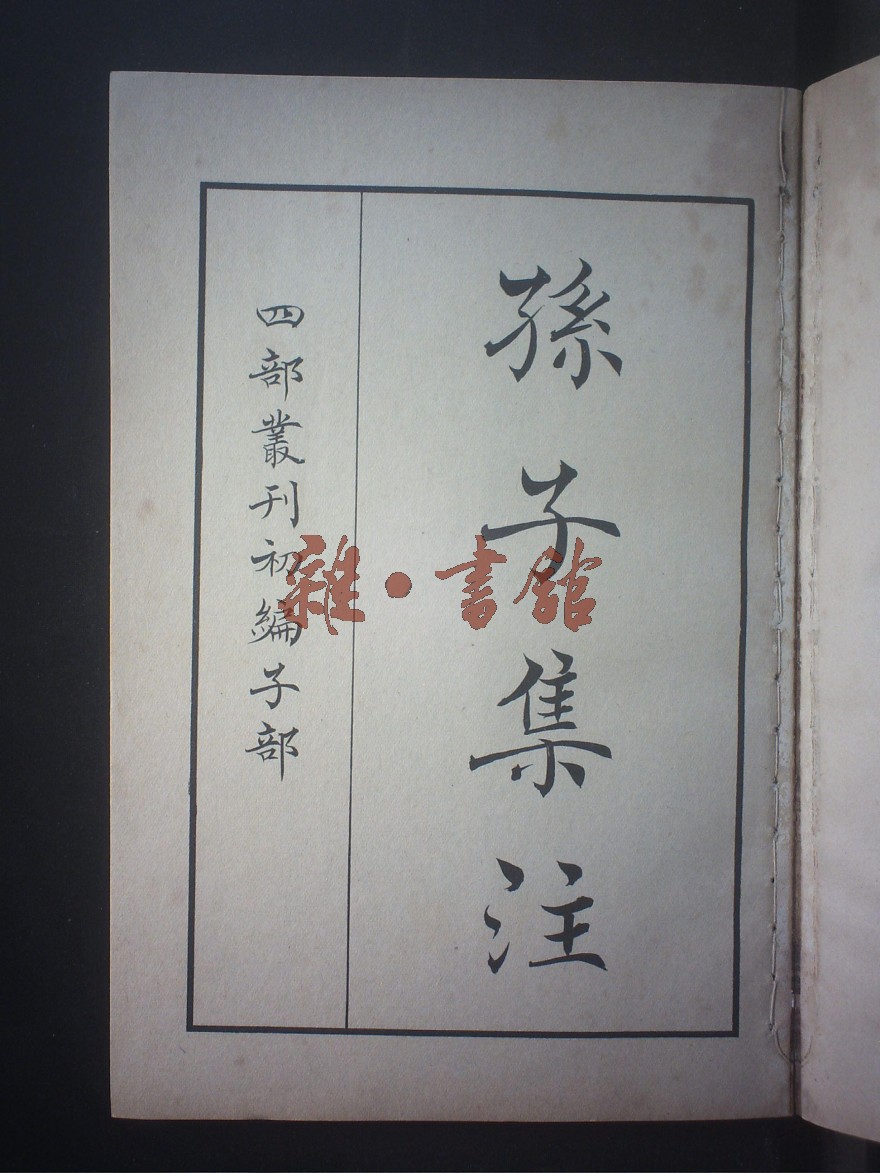 孫子集注
四部叢刊初編子部
雜·書館